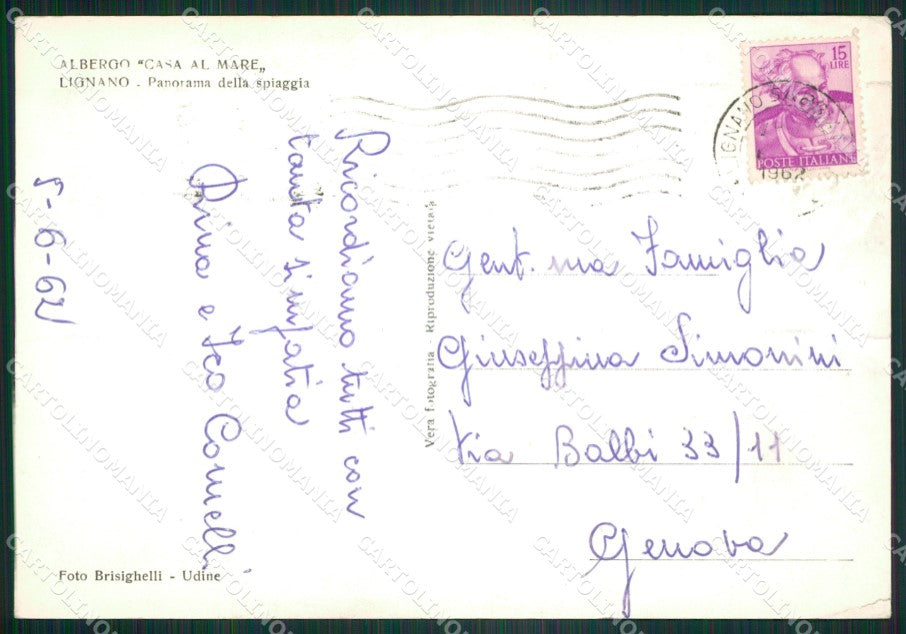 ALBERGO "CASA AL MARE„
LIGNANO - Panorama della spiaggia
15
LIRE
POSTE ITALIANE
1962
Ricordiamo tutti con
tanta simpatia
Pina e
5-6-62
Vera fotografia - Riproduzione vietata
Gent. ma Famiglia
Giuseppina Simonini
Via Balbi 33/11
Genova
Foto Brisighelli - Udine
CARTOLINOMANIA